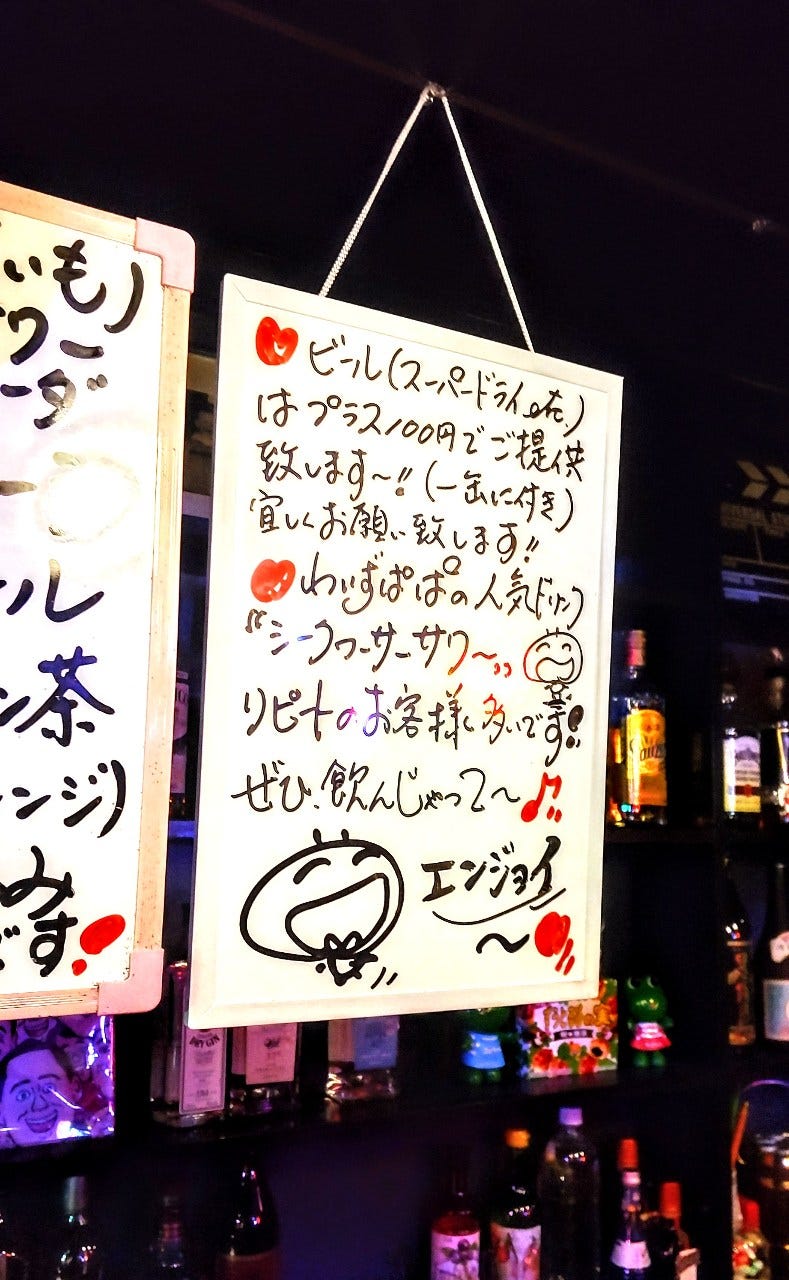 いも)
ワー
ーダ
ー
ール
ン茶
レンジ)
み
です!
ビール(スーパードライetc.)
はプラス100円でご提供
致します〜!!(一缶に付き)
宜しくお願い致します!!
わいずぱぱの人気ドリンク
“シークワーサーサワ〜”
リピートのお客様も多いです!!
ぜひ、飲んじゃって〜♪!!
エンジョイ
〜!!
DRY GIN